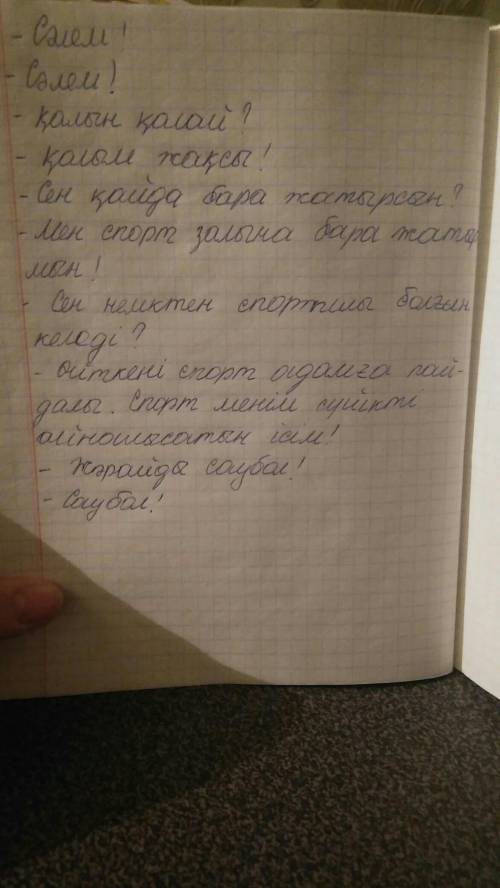 - Сәлем!
- Сәлем!
- Қалын қалай?
- Қалым жақсы!
- Сен қайда бара жатырсын?
- Мен спорт залына бара жатыр
мын!
- Сен неліктен спортшы болғын
келеді?
- Өйткені спорт адамға пай-
далы. Спорт менім сүйікті
айналысатын ісім!
- Жарайды саубол!
- Саубол!